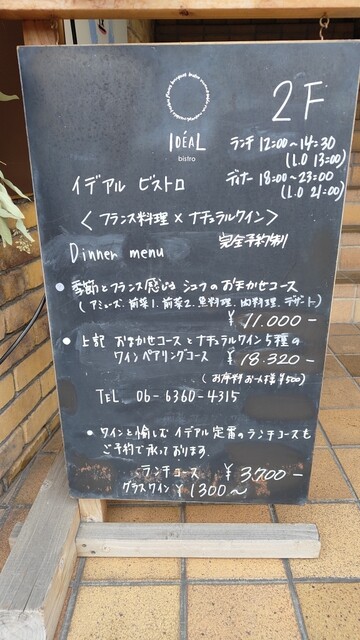 IDÉAL
bistro
2F
ランチ 12:00〜14:30
(L.O 13:00)
ディナー 18:00〜23:00
(L.O 21:00)
イデアル ビストロ
〈フランス料理×ナチュラルワイン〉
完全予約制
Dinner menu
• 季節とフランス感じる シェフのおまかせコース
(アミューズ、前菜1、前菜2、魚料理、肉料理、デザート)
¥11.000-
• 上記 おまかせコースとナチュラルワイン5種の
ワインペアリングコース ¥18.320-
(お席料お一人様¥500)
TEL 06-6360-4315
• ワインと愉しむ イデアル定番のランチコースも
ご予約で承っております。
ランチコース ¥3700-
グラスワイン ¥1300〜